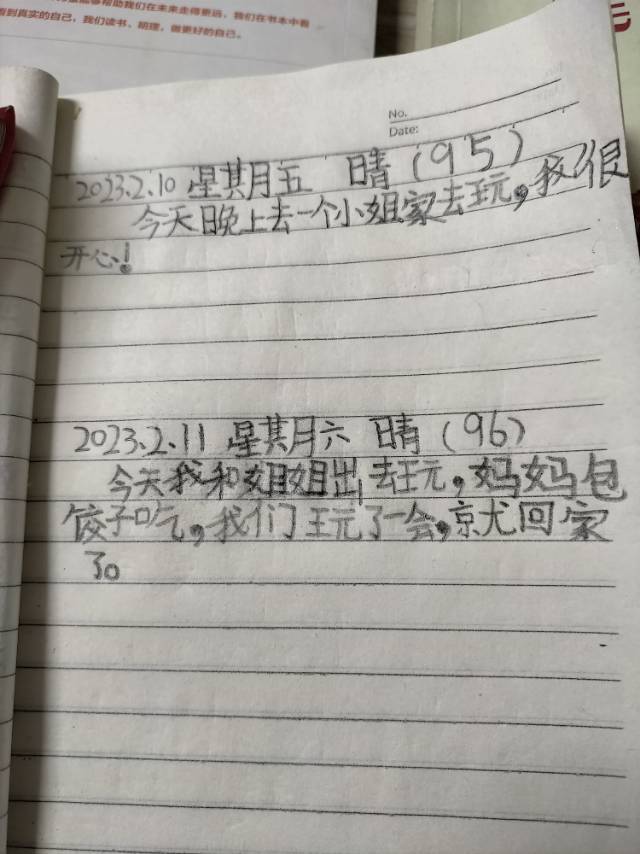 帮助我们在未来走得更远，我们在书本中看
到真实的自己，我们读书、明理，做更好的自己。
No.
Date:
2023.2.10 星期五 晴（95）
今天晚上去一个小姐家去玩，我很
开心！
2023.2.11 星期六 晴（96）
今天我和姐姐出去玩，妈妈包
饺子吃，我们玩了一会，就回家
了。